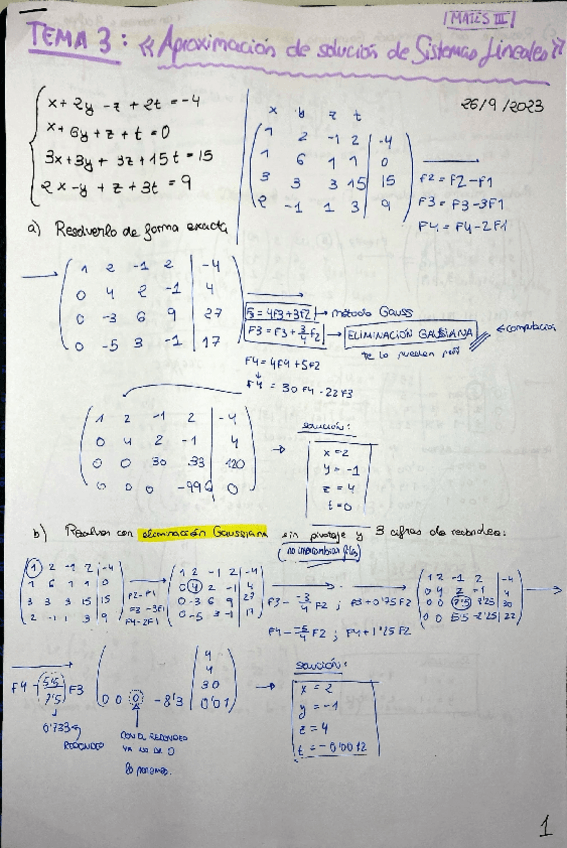 MATES III
TEMA 3: "Aproximación de solución de Sistemas Lineales"
26/9/2023
x + 2y - z + 2t = -4
x + 6y + z + t = 0
3x + 3y + 3z + 15t = 15
2x - y + z + 3t = 9
x y z t
1 2 -1 2 | -4
1 6 1 1 | 0
3 3 3 15 | 15
2 -1 1 3 | 9
F2 = F2 - F1
F3 = F3 - 3F1
F4 = F4 - 2F1
a) Resolverlo de forma exacta
1 2 -1 2 | -4
0 4 2 -1 | 4
0 -3 6 9 | 27
0 -5 3 -1 | 17
F3 = 4F3 + 3F2 → método Gauss
F3 = F3 + 3/4 F2 → ELIMINACIÓN GAUSSIANA
← computación
te lo pueden pedir
F4 = 4F4 + 5F2
F4 = 30F4 - 22F3
1 2 -1 2 | -4
0 4 2 -1 | 4
0 0 30 33 | 120
0 0 0 -996 | 0
solución:
x = 2
y = -1
z = 4
t = 0
b) Resolver con eliminación Gaussiana sin pivotaje y 3 cifras de redondeo:
(no intercambiar filas)
1 2 -1 2 | -4
1 6 1 1 | 0
3 3 3 15 | 15
2 -1 1 3 | 9
F2 - F1
F3 - 3F1
F4 - 2F1
1 2 -1 2 | -4
0 4 2 -1 | 4
0 -3 6 9 | 27
0 -5 3 -1 | 17
F3 - -3/4 F2 ; F3 + 0'75 F2
F4 - -5/4 F2 ; F4 + 1'25 F2
1 2 -1 2 | -4
0 4 2 -1 | 4
0 0 7'5 8'25 | 30
0 0 5'5 -2'25 | 22
F4 - 5'5/7'5 F3
0'733
REDONDEO
4
4
30
0 0 0 -8'3 | 0'01
CON EL REDONDEO
YA NO DA 0
lo ponemos.
solución:
x = 2
y = -1
z = 4
t = -0'0012
1